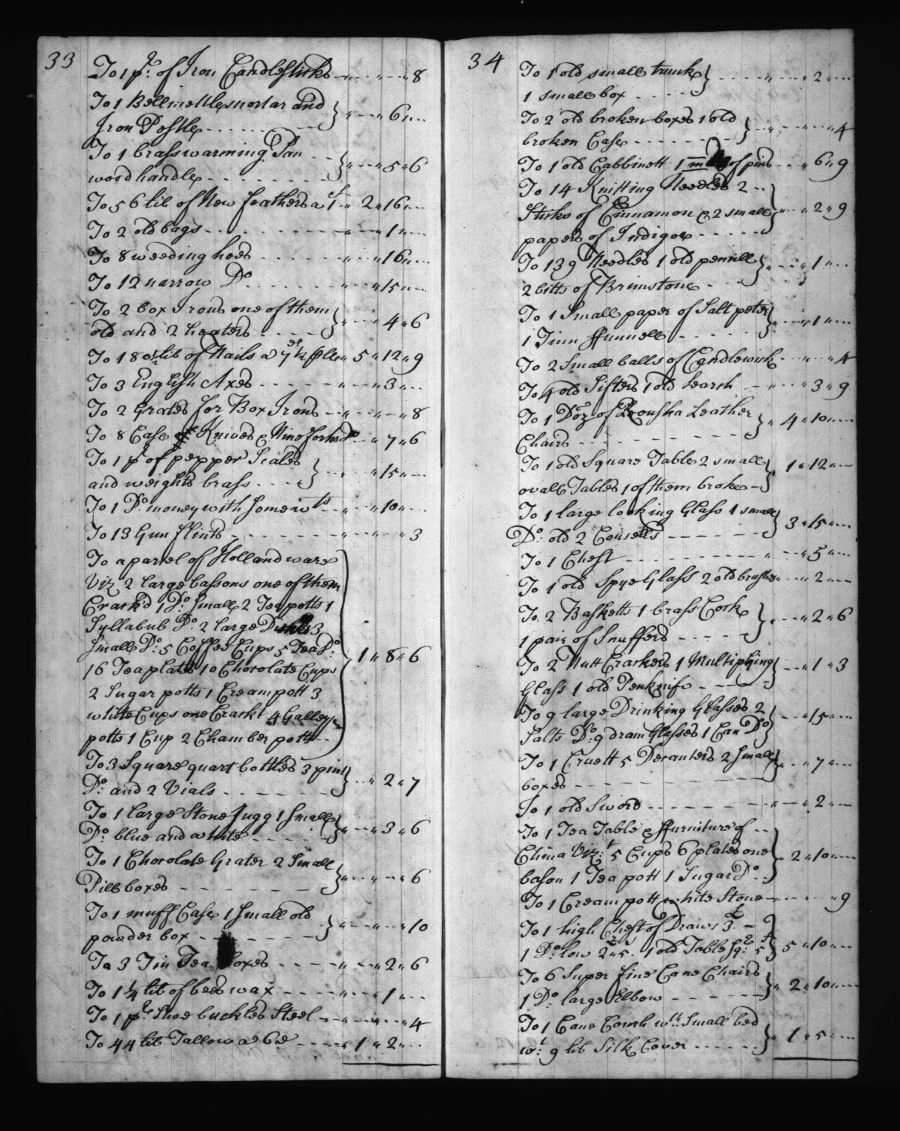 33
To 1 pr. of Iron Candlesticks - " - " - " 8
To 1 Bellmettle mortar and
Iron Pestle - - - - - - } " - " 6 " -
To 1 brass warming Pan
wood handle - - - - } " - " 5 " 6
To 56 lib of New feathers a 1/ - 2 " 16 " -
To 2 old bags - - - - - " - " 1 " -
To 8 weeding hoes - - " - " 16 " -
To 12 narrow Do - - " - " 15 " -
To 2 box Irons one of them
old and 2 heaters - - - - } " - " 4 " 6
To 180 lib of Nails a - 5 " 12 " 9
To 3 English Axes - - - - " - " 3 " -
To 2 Grates for Box Irons - " - " - " 8
To 8 Case Knives & Nine forks - " 7 " 6
To 1 pr of pepper Scales
and weights brass - - - } " - " 15 " -
To 1 Do money with some wts " - " 10 " -
To 13 Gun flints - - - - " - " - " 3
To a parcel of Holland ware
Viz 2 large basons one of them
Crack'd 1 Do. Small 2 Tea potts 1
Syllabub Do. 2 large Dishes 3
Small Do. 5 Coffee Cups 5 Tea Do.
16 Tea plates 10 Chocolate Cups } 1 " 8 " 6
2 Sugar potts 1 Cream pott 3
white Cups one Crackt 4 Galley
potts 1 Cup 2 Chamber potts
To 3 Square quart bottles 3 pint
Do. and 2 Vials - - - - - } " - " 2 " 7
To 1 large Stone Jugg 1 Small
Do. blue and white - - - - } " - " 3 " 6
To 1 Chocolate Grater 2 Small
Pill boxes - - - - - - } " - " - " 6
To 1 muff Case 1 Small old
powder box - - - - - - } " - " - " 10
To 3 Tin Tea boxes - - - " - " 2 " 6
To 1 1/4 lib of bees wax - - - " - " 1 " -
To 1 pr. Shoe buckles Steel - - " - " - " 4
To 44 lib Tallow a 6d - - - - 1 " 2 " -
34
To 1 old small trunk
1 small box - - - - - } - - - " - " 2 " -
To 2 old broken boxes 1 old
broken Case - - - - - } " - " - " 4
To 1 old Cabbinett 1 of pins - - " 6 " 9
To 14 Knitting Needles 2 - -
Sticks of Cinnamon & 2 small } " - " 2 " 9
papers of Indigo - - - - -
To 139 Needles 1 old penvill
2 bitts of Brimstone - - } " - " 1 " -
To 1 Small paper of Salt peter
1 Tinn ffunnell - - - - - } " - " 1 " -
To 2 Small balls of Candlewick " - " - " 4
To 4 old Sifters 1 old Search - - " 3 " 9
To 1 Doz of Roousha Leather
Chairs - - - - - - - - - } " 4 " 10 " -
To 1 old Square Table 2 small
ovall Tables 1 of them broke - } 1 " 12 " -
To 1 large looking Glass 1 small
Do. old 2 - - - - - - } 3 " 15 " -
To 1 Chest - - - - - - - - " - " 5 " -
To 1 old Spye Glass 2 old brushes - " 2 " -
To 2 Basketts 1 brass Cork
1 pair of Snuffers - - - - } " - " 2 " 6
To 2 Nutt Crackers 1 Multiplying
Glass 1 old Penknife - - - } " - " 1 " 3
To 9 large Drinking Glasses 2
Salts Do. 9 dram Glasses 1 Can Do } " - " 15 " -
To 1 Cruett 5 Decanters 2 Small
boxes - - - - - - - - - } " - " 7 " -
To 1 old Sword - - - - - - - " - " 2 " -
To 1 Tea Table & ffurniture of - -
China Viz. 5 Cups 6 plates one } 2 " 10 " -
bason 1 Tea pott 1 Sugar Do.
To 1 Cream pott white Stone - - - - " 9
To 1 high Chest of Draws 3 -
1 Do. low 2 " 5 1 old Table 5 } 5 " 10 " -
To 6 Super fine Cane Chairs
1 Do. large Elbow - - - - - } 2 " 10 " -
To 1 Cane Couch wth. Small bed
wt. 9 lib Silk Cover - - - - - } 1 " 5 " -